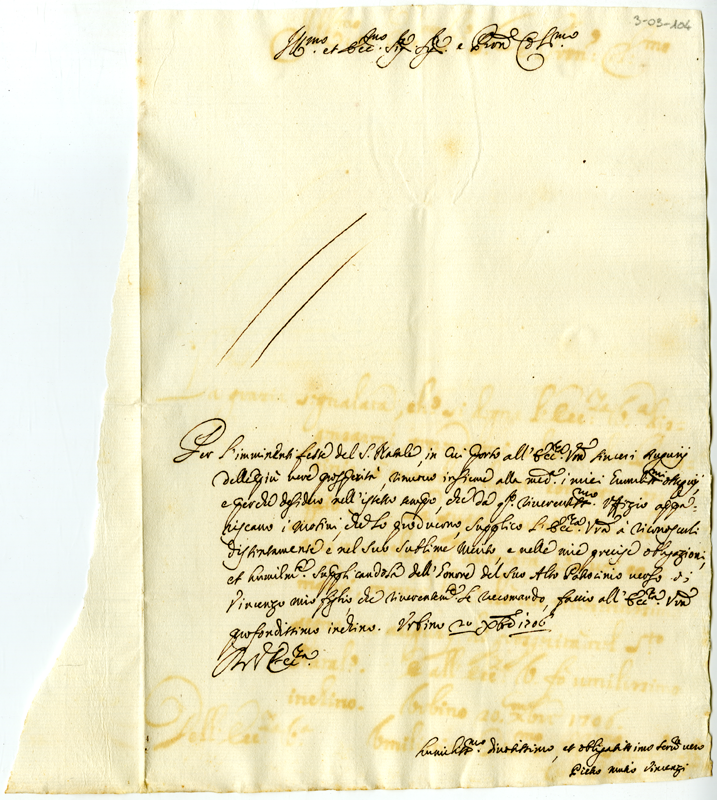 3-03-104
Ill.mo et Ecc.mo Sig.r Sig.r e Pron Col.mo
Per l'imminenti feste del S. Natale, in cui porto all'Ecc.za Vra sinceri Augurij
delle più vere prosperità, rinuovo insieme alla med.a i miei humil.mi ossequij
e perche desidero nell'istesso tempo, che da q.sto riverentiss.mo Uffizio appa-
riscano i motivi, che lo producono, supplico l'Ecc.za Vra à riconoscerli
distintamente e nel suo sublime merito e nelle mie precise obligazioni,
et humilm.te supplicandola dell'honore del suo Alto Patrocinio verso di
Vincenzo mio figlio che riverentem.te le raccomando, faccio all'Ecc.za Vra
profondissimo inchino. Urbino 20 Xbre 1706
Di V. Ecc.za
humiliss.mo divotissimo, et obligatissimo serv.re vero
Pietro Vincenzi
La grazia segnalata, che
e all'Ecc.za V. fo umilissimo
inchino. Urbino 20. Xbre 1706.
Dell'Ecc.za V.ra